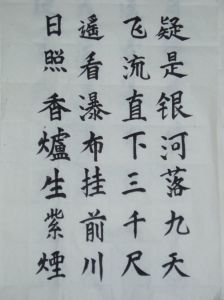 日照香爐生紫煙
遙看瀑布挂前川
飞流直下三千尺
疑是银河落九天